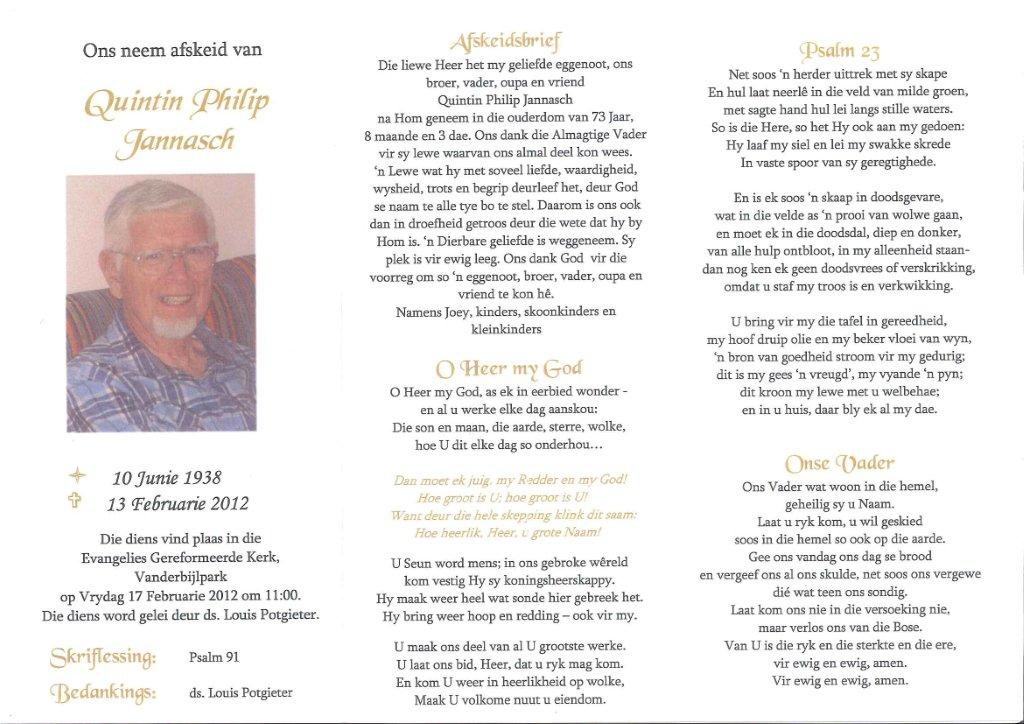 Ons neem afskeid van
Quintin Philip
Jannasch
10 Junie 1938
13 Februarie 2012
Die diens vind plaas in die
Evangelies Gereformeerde Kerk,
Vanderbijlpark
op Vrydag 17 Februarie 2012 om 11:00.
Die diens word gelei deur ds. Louis Potgieter.
Skriflessing: Psalm 91
Bedankings: ds. Louis Potgieter
Afskeidsbrief
Die liewe Heer het my geliefde eggenoot, ons
broer, vader, oupa en vriend
Quintin Philip Jannasch
na Hom geneem in die ouderdom van 73 Jaar,
8 maande en 3 dae. Ons dank die Almagtige Vader
vir sy lewe waarvan ons almal deel kon wees.
‘n Lewe wat hy met soveel liefde, waardigheid,
wysheid, trots en begrip deurleef het, deur God
se naam te alle tye bo te stel. Daarom is ons ook
dan in droefheid getroos deur die wete dat hy by
Hom is. ‘n Dierbare geliefde is weggeneem. Sy
plek is vir ewig leeg. Ons dank God vir die
voorreg om so ‘n eggenoot, broer, vader, oupa en
vriend te kon hê.
Namens Joey, kinders, skoonkinders en
kleinkinders
O Heer my God
O Heer my God, as ek in eerbied wonder -
en al u werke elke dag aanskou:
Die son en maan, die aarde, sterre, wolke,
hoe U dit elke dag so onderhou…
Dan moet ek juig, my Redder en my God!
Hoe groot is U; hoe groot is U!
Want deur die hele skepping klink dit saam:
Hoe heerlik, Heer, u grote Naam!
U Seun word mens; in ons gebroke wêreld
kom vestig Hy sy koningsheerskappy.
Hy maak weer heel wat sonde hier gebreek het.
Hy bring weer hoop en redding – ook vir my.
U maak ons deel van al U grootste werke.
U laat ons bid, Heer, dat u ryk mag kom.
En kom U weer in heerlikheid op wolke,
Maak U volkome nuut u eiendom.
Psalm 23
Net soos ‘n herder uittrek met sy skape
En hul laat neerlê in die veld van milde groen,
met sagte hand hul lei langs stille waters.
So is die Here, so het Hy ook aan my gedoen:
Hy laaf my siel en lei my swakke skrede
In vaste spoor van sy geregtighede.
En is ek soos ‘n skaap in doodsgevare,
wat in die velde as ‘n prooi van wolwe gaan,
en moet ek in die doodsdal, diep en donker,
van alle hulp ontbloot, in my alleenheid staan-
dan nog ken ek geen doodsvrees of verskrikking,
omdat u staf my troos is en verkwikking.
U bring vir my die tafel in gereedheid,
my hoof druip olie en my beker vloei van wyn,
‘n bron van goedheid stroom vir my gedurig;
dit is my gees ‘n vreugd’, my vyande ‘n pyn;
dit kroon my lewe met u welbehae;
en in u huis, daar bly ek al my dae.
Onse Vader
Ons Vader wat woon in die hemel,
geheilig sy u Naam.
Laat u ryk kom, u wil geskied
soos in die hemel so ook op die aarde.
Gee ons vandag ons dag se brood
en vergeef ons al ons skulde, net soos ons vergewe
dié wat teen ons sondig.
Laat kom ons nie in die versoeking nie,
maar verlos ons van die Bose.
Van U is die ryk en die sterkte en die ere,
vir ewig en ewig, amen.
Vir ewig en ewig, amen.